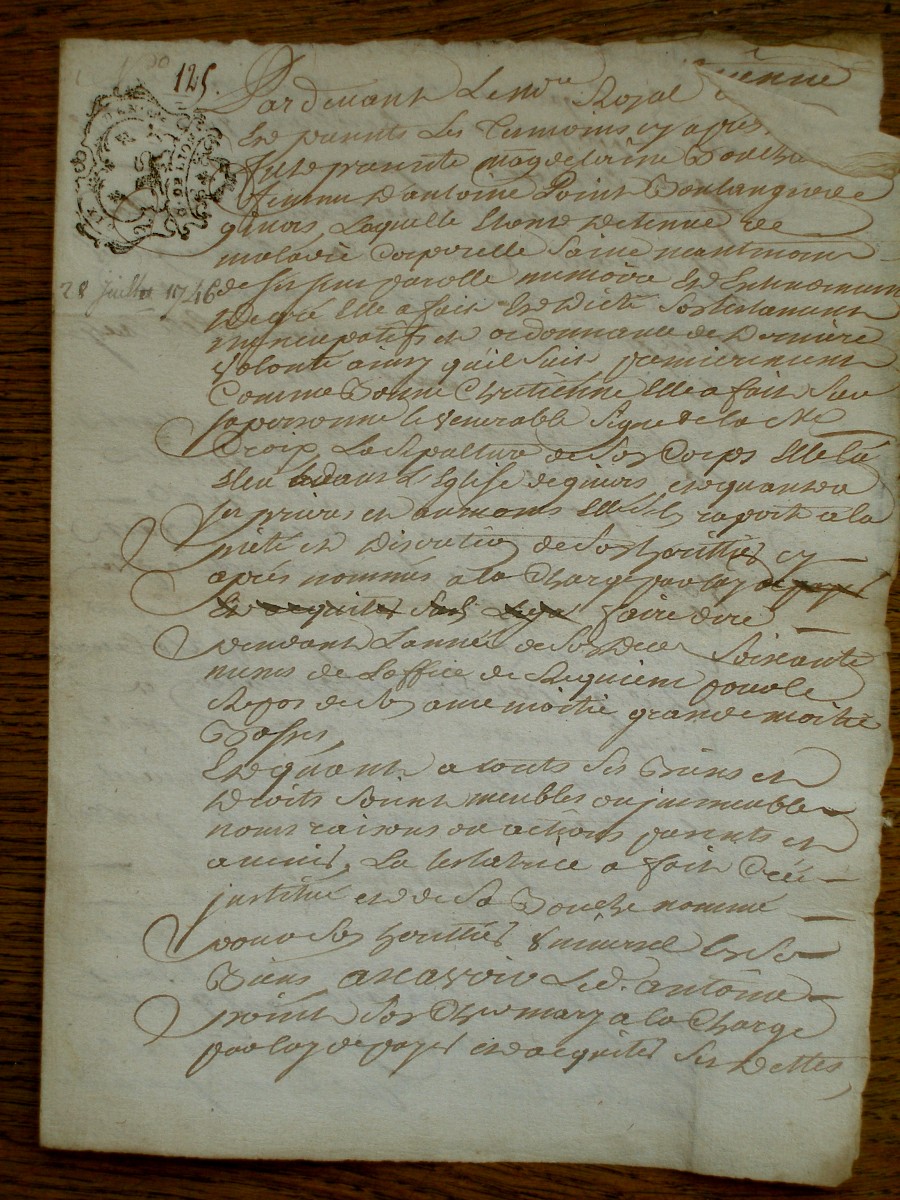 125.
Pardevant Le no.re Royal
et presents Les Temoins cy apres
fut presente magdelaine
femme D'antoine Point Boulanger de
givors, Laquelle Etant Detenue de
maladie Corporelle Saine neantmoins
de ses sens parolle memoire et Entendement
De gré Elle a fait et Dicté Son testament
nuncupatif et ordonnance de Derniere
volonté ainsy qu'il Suit premierement
Comme Bonne Chretienne Elle a fait Sur
sa personne le venerable Signe de la Ste
Croix, La Sepulture de Son Corps Elle la
Eleu dans L'Eglise de givors et quant a
ses prieres et aumones Elle S'en raporte a la
pieté et Discretion de Son heritier cy
28 juillet 1746
apres nommé a la Charge par luy de payer
et acquiter Ses Legs faire dire
pendant L'année de Son Deces Soixante
messes de L'office de Requiem pour le
Repos de Son ame moitié grande moitié
Basses,
Et quant a touts Ses Biens et
Droits Soint meubles ou immeubles
noms raisons ou actions presents et
avenir, La testatrice a fait Créé
institué et de Sa Bouche nommé
pour Son heritier universel En Ses
Biens a scavoir Led. antoine
point Son Cher mary a la Charge
par luy de payer et acquiter Ses Dettes,